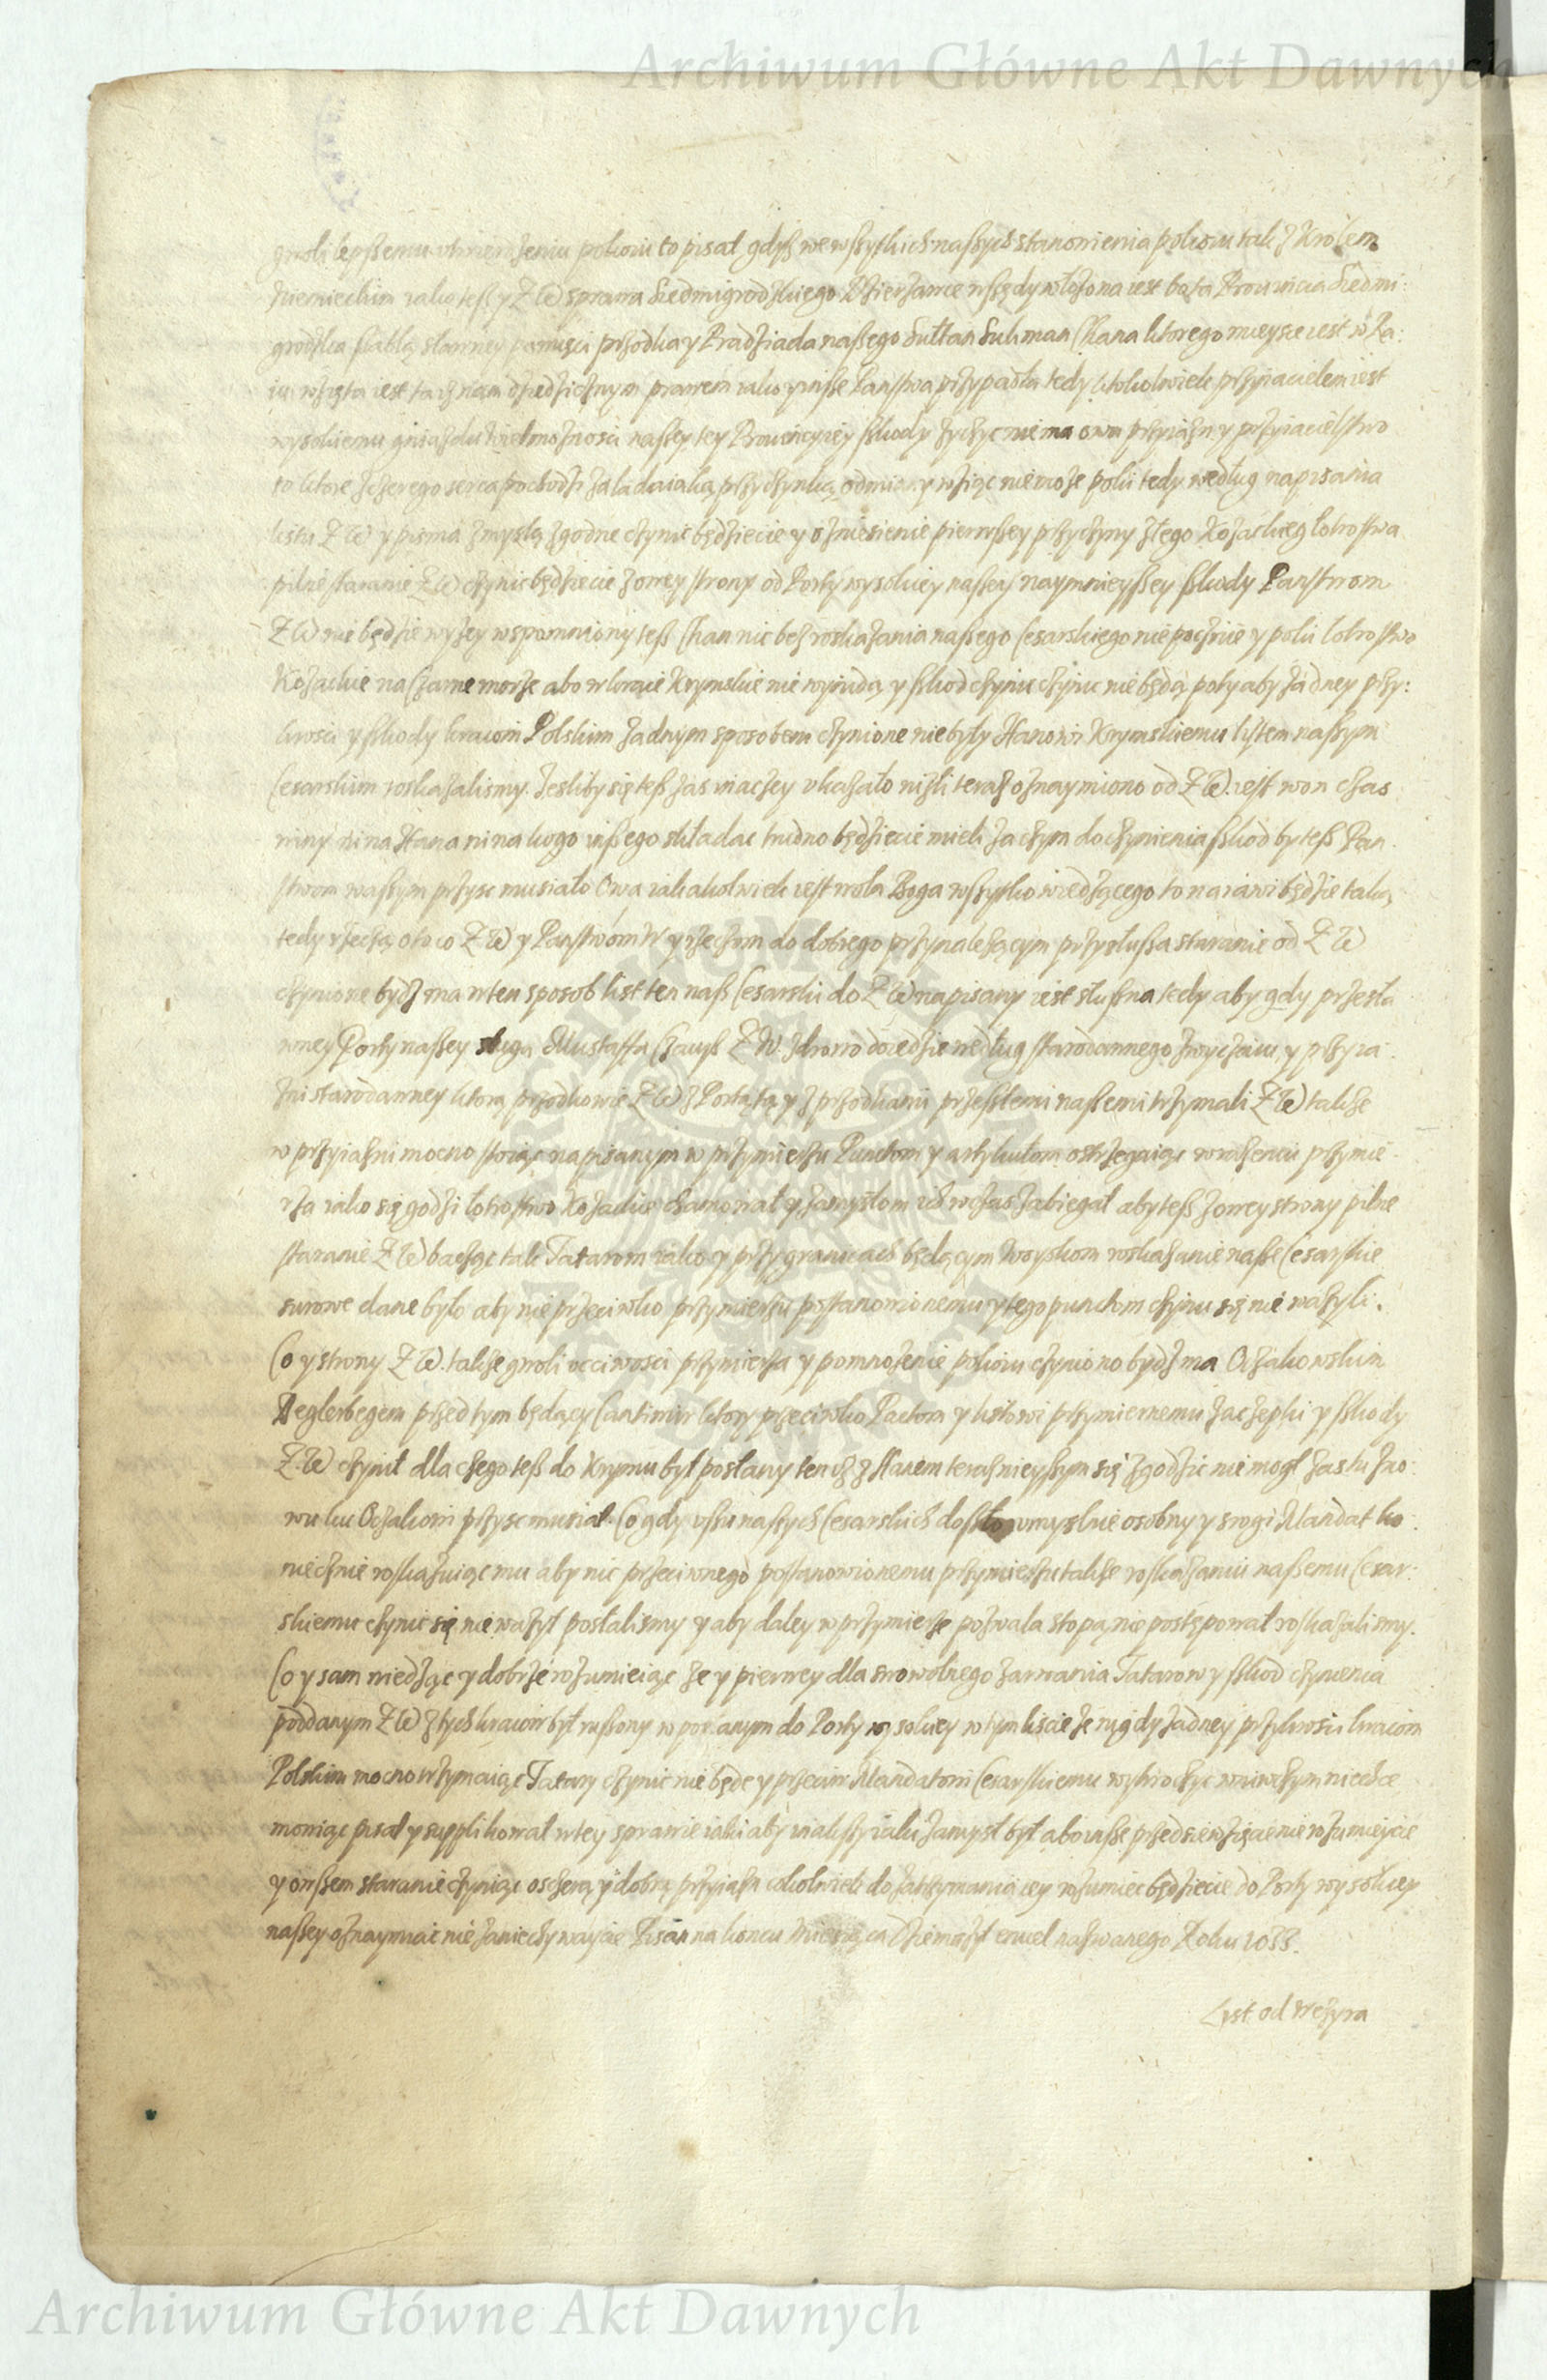 Archiwum Główne Akt Dawnych
gwoli lepszemu utwierdzeniu pokoiu to pisał gdyß we wszytkich naszych stanowienia pokoiu tak z Krolem
Niemieckim iako teß y Z W sprawa Siedmigrodzkiego wszędy włożona iest bo ta Prowincia Siedmi:
grodzka szablą sławney pamięci przodka y Pradziada naszego Sułtan Suliman Chana ktorego mieysce iest w Ra:
iu wzięta iest taż nam dziedzicznym prawem iako y insze Państwa przypadła tedy ktokolwiek przyiacielem iest
wysokiemu gniazdu Wielmożności naszey tey Prowincyiey szkody życzyc nie ma owa przyiazn y przyiacielstwo
to ktore szczerego serca pochodzi za lada iaką przyczynką odmiany wziąc nie może poki tedy według napisania
listu Z W y pisma zmyslą zgodne czynic będziecie y o zniesienie pierwszey przyczyny złego Kozackieg łotrostwa
pilne staranie Z W czynic będziecie z owey strony od Porty wysokiey naszey naymnieyszey szkody Panstwom
Z W nie będzie wyżey wspomniony teß Chan nic bez roskazania naszego Cesarskiego nie pocznie y poki łotrostwo
Kozackie na Czarne morze abo w kraie Krymskie nie wynidą y szkod czynic nie będą poty aby żadney przy:
krosci y szkody kraiom Polskim żadnym sposobem czynione nie były Hanowi Krymskiemu lystem naszym
Cesarskim roskazalismy. Jesliby się teß zas inaczey ukazało niżli teraz oznaymiono od Z W. iest won czas
winy ni na Hana ni na kogo inszego składac trudno będziecie mieli zaczym do czynienia szkod by teß Pan:
stwom waszym przysc musiało Owa iakakolwiek iest wola Boga wszytko wiedzącego to na iawi będzie taką
tedy rzeczą o to co Z W y Panstwom W y rzeczom do dobrego przynależącym przysłusza staranie od Z W
czynione bydz ma w ten sposob list ten nasz Cesarski do Z W napisany iest słuszna tedy aby gdy przesła
wney Porty naszey sługa Mustaffa Czauß Z W. zdrowo doiedzie według starodawnego zwyczaiu y przyia:
zni starodawney ktorą przodkowie Z W z Portą tą y z przodkami przeszłemi naszemi trzymali Z W także
w przyiazni mocno stoiąc napisanym w przymierzu Punctom y artykułom ostrzegaiąc w rażeniu przymie:
rza iako się godzi łotrostwo Kozackie hamował y zamysłom ich wczas zabiegał aby teß z owey strony pilne
staranie Z W bacząc tak Tatarom iako y przy granicach będącym woyskom roskazanie nasze Cesarskie
surowe dane było aby nie przeciwko przymierzu postanowionemu y tego punctom czynic się nie ważyli.
Co y strony Z W. także gwoli uczciwosci przymierza y pomnożenie pokoiu czyniono bydz ma Oczakowskim
Beglerbegem przed tym będący Cantimir ktory przeciwko Pactom y listowi przymiernemu zaczepki y szkody
Z W czynił dla czego teß do Krymu był posłany ten iż z Hanem terazniejszym się zgodzic nie mogł zas tu zno:
wu ku Oczakowi przysc musiał. Co gdy uszu naszych Cesarskich doszło umyslnie osobny y srogi Mandat ko:
niecznie roskazuiąc mu aby nic przeciwnego postanowionemu przymierzu także roskazaniu naszemu Cesar:
skiemu czynic się nie ważył posłalismy y aby daley w przymierze pozwala stopą nie postępował roskazalismy.
Co y sam wiedząc y dobrze rozumieiąc że y pierwey dla swowolnego Tatarow y szkod czynienia
poddanym Z W z tych kraiow był ruszony w podanym do Porty wysokiey w tym liscie że nigdy żadney przykrosci kraiom
Polskim mocno trzymaiąc Tatary czynic nie będe y przeciw Mandatom Cesarskiemu wykroczyc w niwczym niechcę
mowiąc pisał y supplikował w tey sprawie iakiaby inakszy iaki zamysł był abo insze przedsięwzięcie nie rozumiejcie
y owszem staranie czyniąc o szczerą y dobrą przyiazn cokolwiek do zatrzymania iey rozumiec będziecie do Porty wysokiey
naszey oznaymiac nie zaniechywajcie Pisan na koncu Miesiąca Dziemazył ewel nazwanego Roku 1033.
Lyst od Wezyra
Archiwum Główne Akt Dawnych